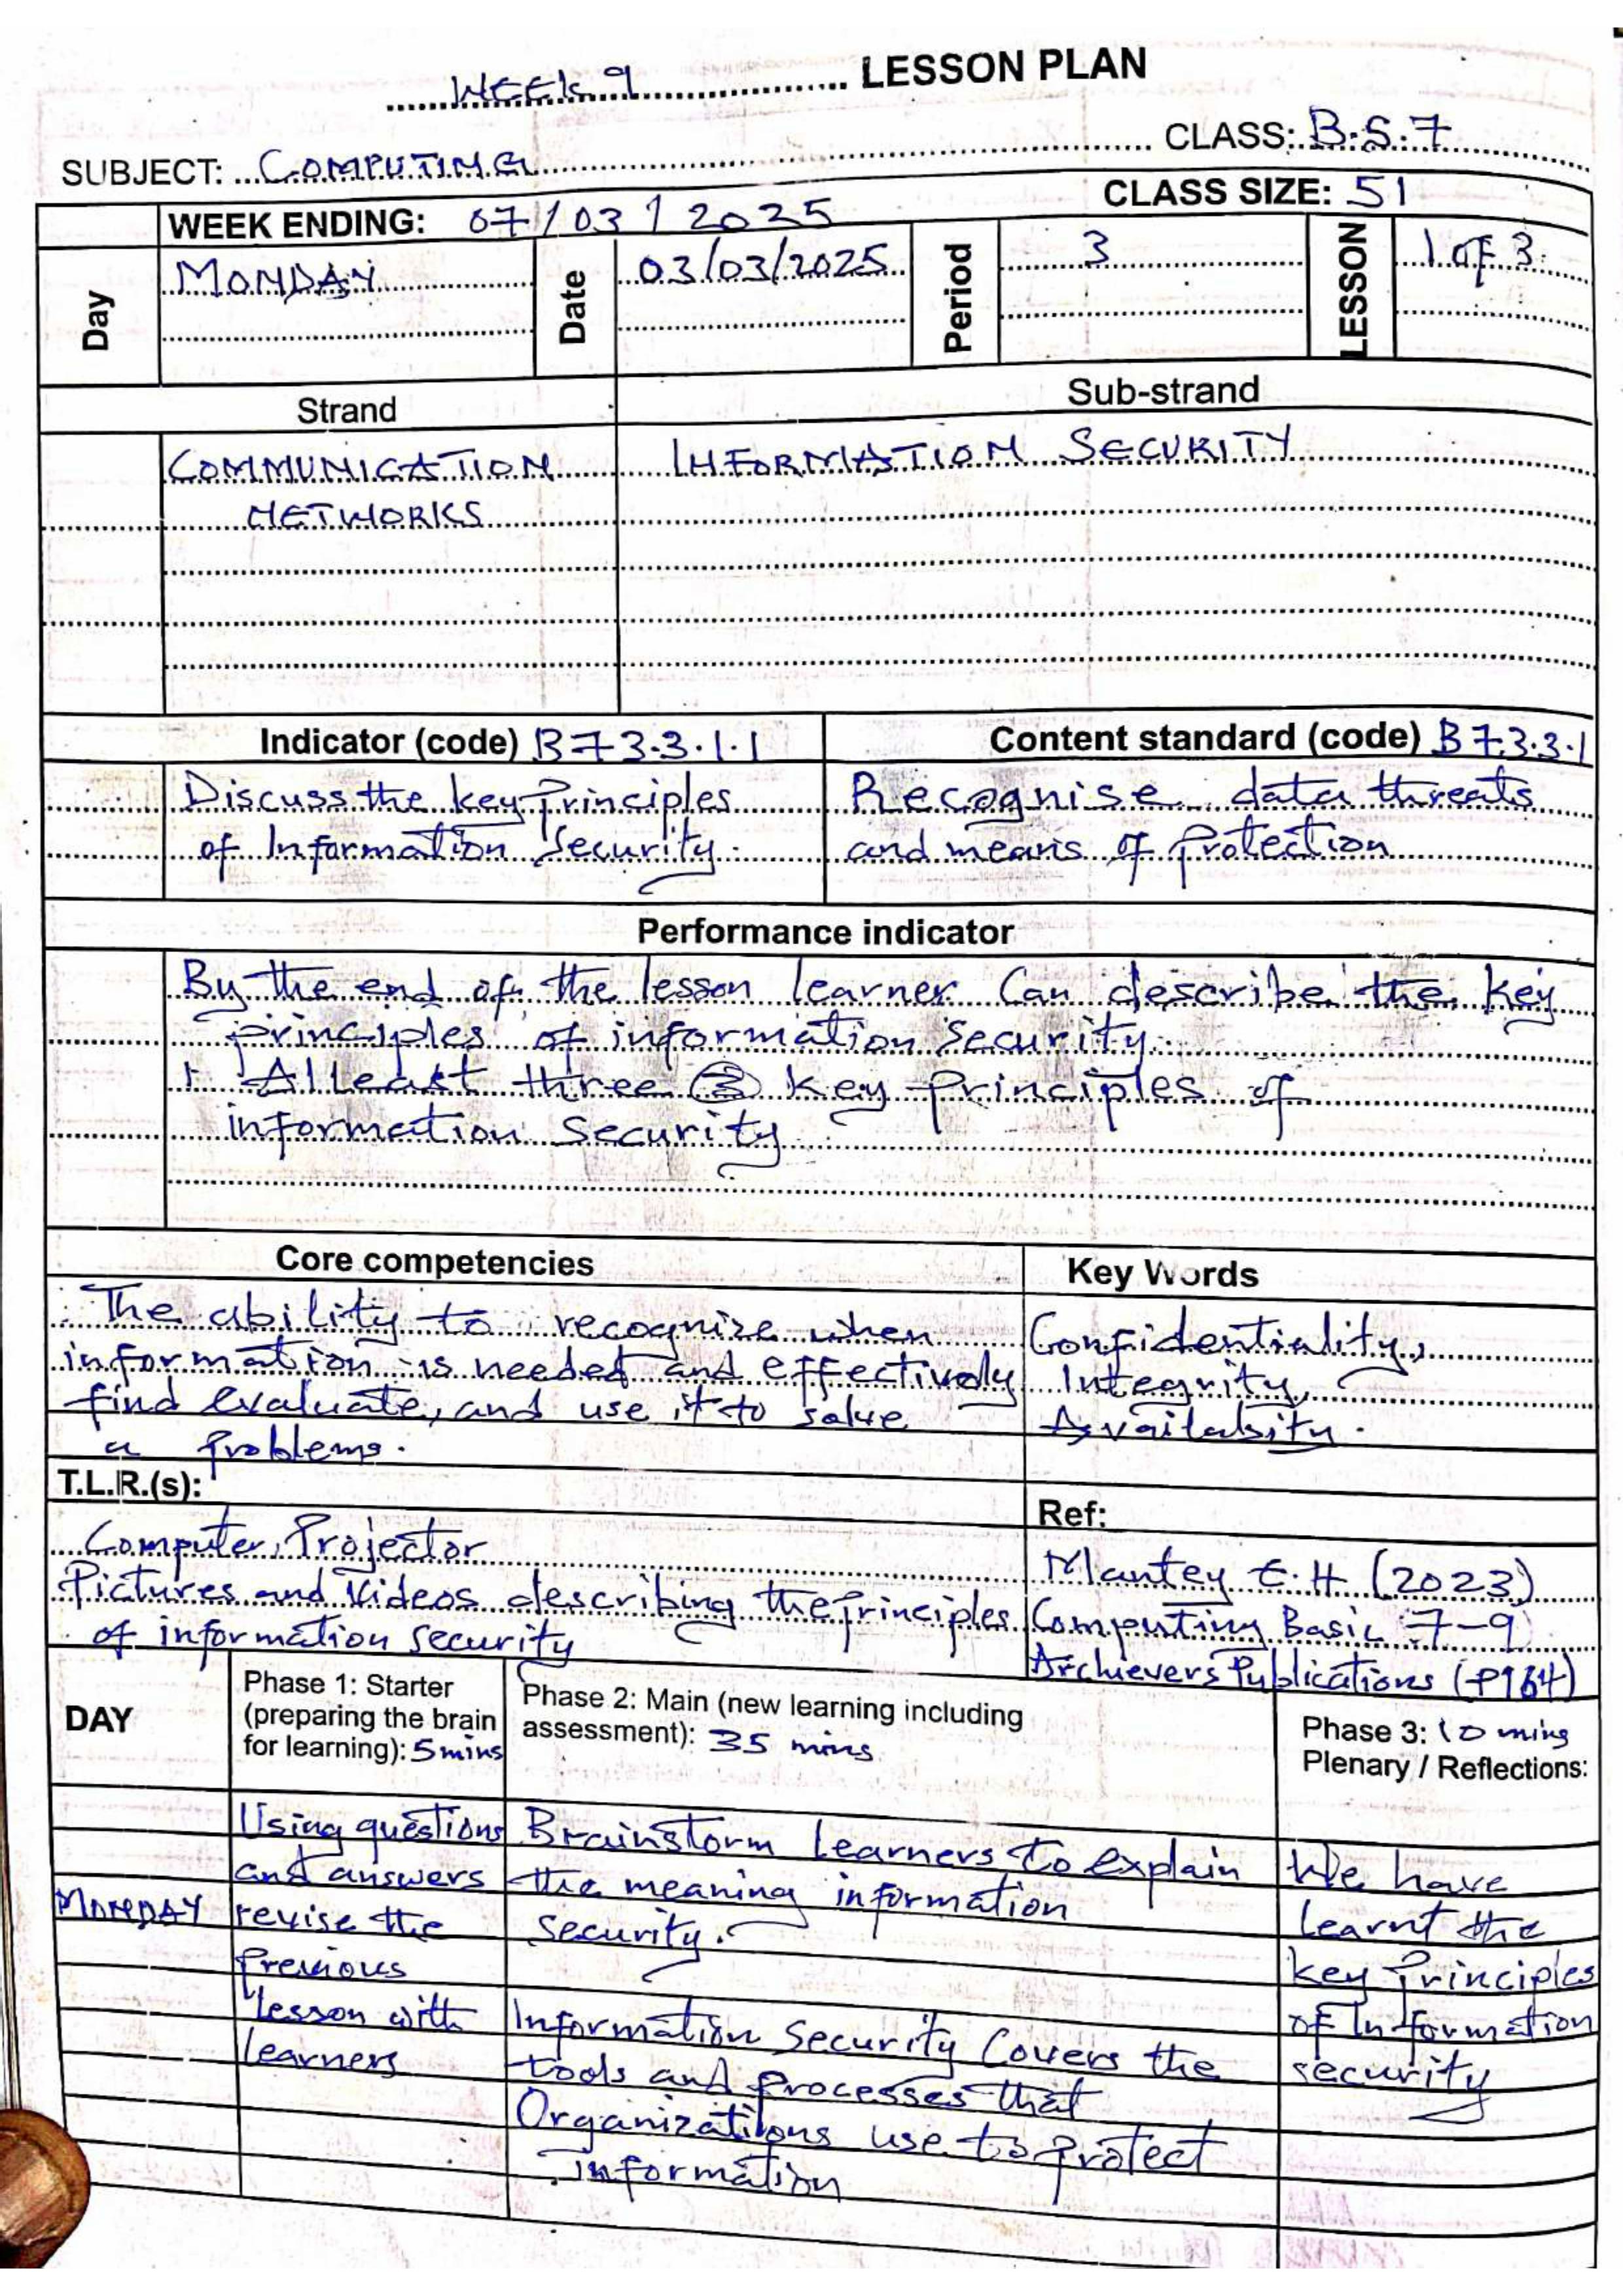 WEEK 9 LESSON PLAN
SUBJECT: COMPUTING CLASS: B.S.7
WEEK ENDING: 07/03/2025 CLASS SIZE: 51
Day MONDAY Date 03/03/2025 Period 3 LESSON 1 of 3
Strand Sub-strand
COMMUNICATION INFORMATION SECURITY
NETWORKS
Indicator (code) B73.3.1.1 Content standard (code) B7.3.3.1
Discuss the key Principles Recognise data threats
of Information Security. and means of Protection
Performance indicator
By the end of the lesson learner Can describe the key
principles of information Security.
1. Atleast three (3) key Principles of
information Security
Core competencies Key Words
The ability to recognize when Confidentiality,
information is needed and effectively Integrity,
find evaluate, and use it to solve Availabity.
a Problems.
T.L.R.(s): Ref:
Computer, Projector Mantey E.H (2023)
Pictures and Videos describing the Principles Computing Basic 7-9
of information security Archievers Publications (P164)
DAY
Phase 1: Starter
(preparing the brain
for learning): 5mins
Phase 2: Main (new learning including
assessment): 35 mins
Phase 3: 10 mins
Plenary / Reflections:
MONDAY
Using questions
and answers
revise the
Previous
lesson with
learners
Brainstorm Learners to explain
the meaning information
security.
Information Security Covers the
tools and Processes that
Organizations use to Protect
information
We have
Learnt the
key Principles
of Information
security